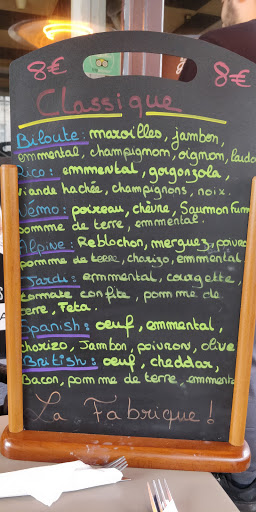 8€ 8€
Classique
Biloute: maroilles, jambon,
emmental, champignon, oignon, lardo
Rico: emmental, gorgonzola,
viande hachée, champignons, noix.
Némo: poireau, chèvre, Saumon Fum
pomme de terre, emmental.
Alpine: Reblochon, merguez, poivro
pomme de terre, chorizo, emmental
Jardi: emmental, courgette,
tomate confite, pomme de
terre, Feta.
Spanish: oeuf, emmental,
chorizo, Jambon, poivron, olive
British: oeuf, cheddar,
Bacon, pomme de terre, emmenta
La Fabrique!